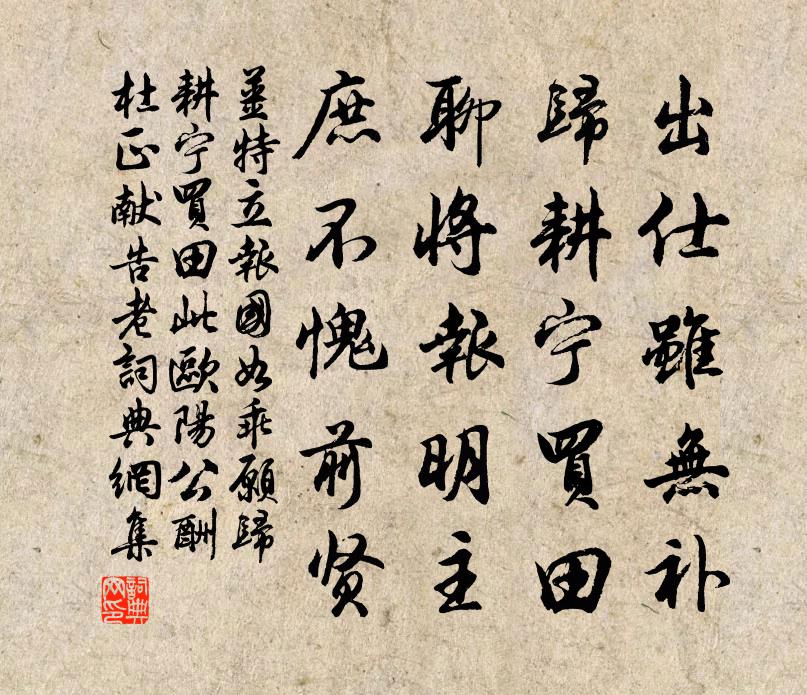 出仕雖無补
歸耕宁買田
聊將報明主
庶不愧前贤
薑特立報國如乖願歸
耕宁買田此歐陽公酬
杜正献告老詞典網集
詞典網印